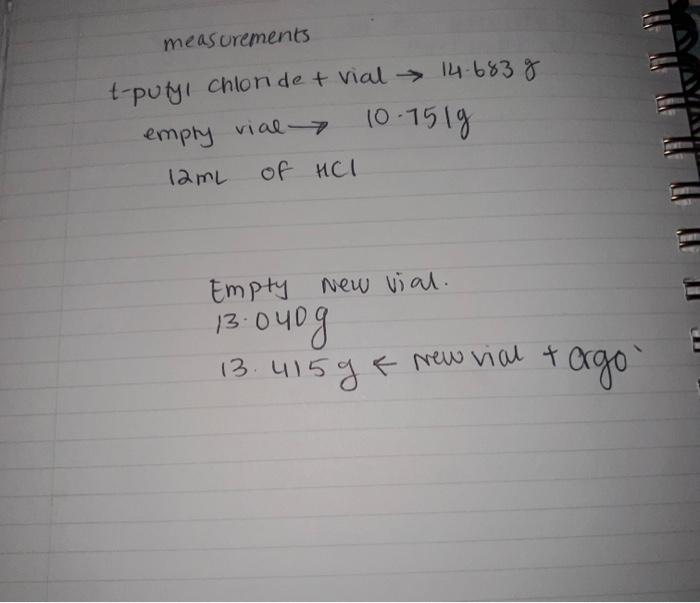 measurements
t-putyl chloride + vial → 14.683 g
empty vial → 10.751g
12mL of HCl
Empty New vial.
13.040g
13.415g ← New vial + orgo